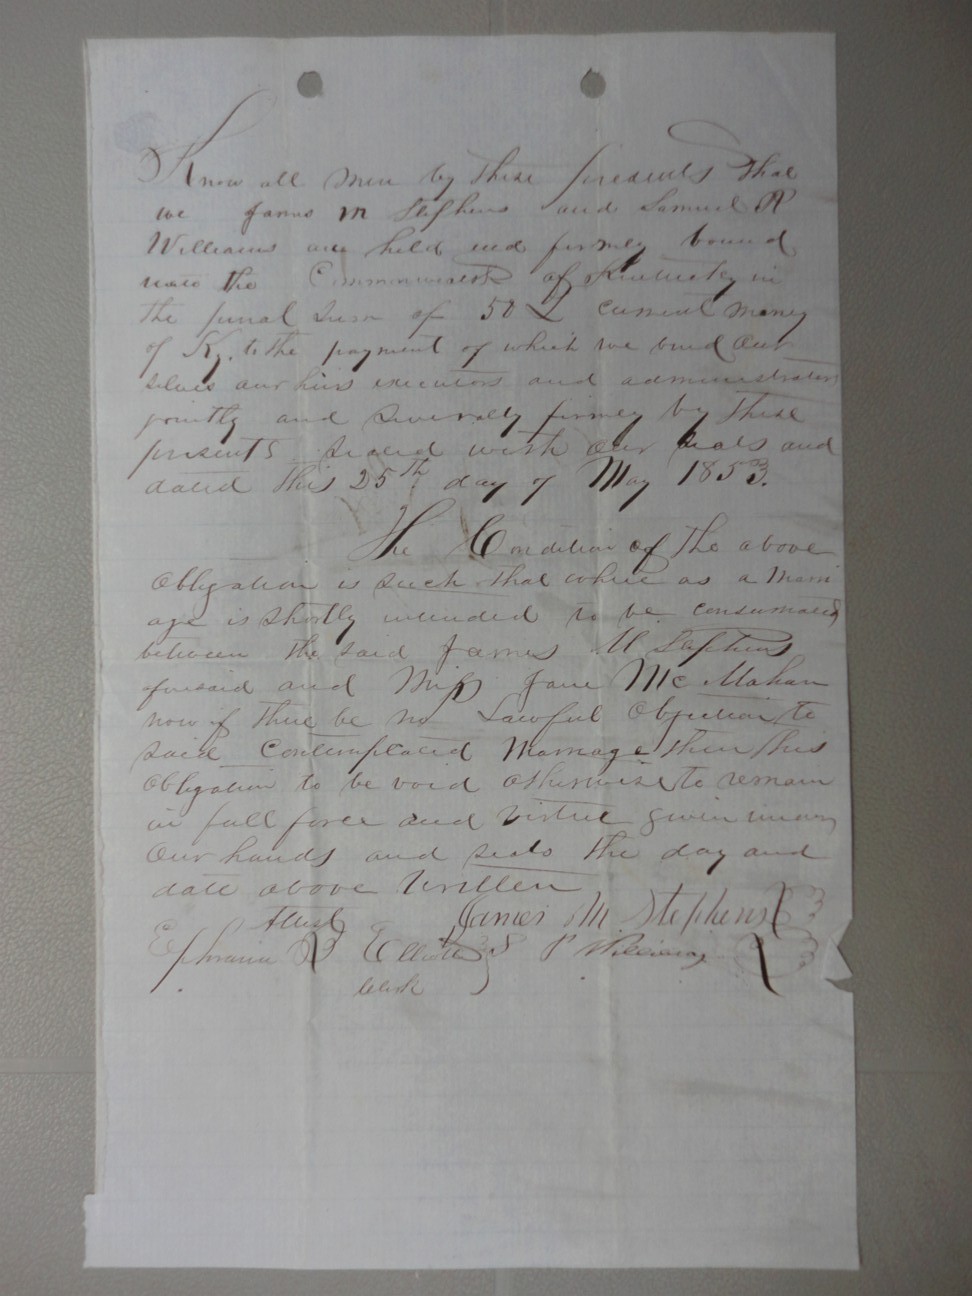 Know all men by these presents that
we James M Stephens and Samuel P
Williams are held and firmly bound
unto the Commonwealth of Kentucky in
the penal sum of 50 £ current money
of Ky. to the payment of which we bind our
selves our heirs executors and administrators
jointly and severally firmly by these
presents sealed with our seals and
dated this 25th day of May 1853.
The Condition of the above
Obligation is such that where as a Marri
age is shortly intended to be consumated
between the said James M Stephens
foresaid and Miss Jane McMahan
now if there be no Lawful Objection to
said Contemplated Marriage then this
Obligation to be void otherwise to remain
in full force and virtue given under
Our hands and seals the day and
date above Written
Attest James M Stephens
Ephraim B Elliott S P Williams
Clerk